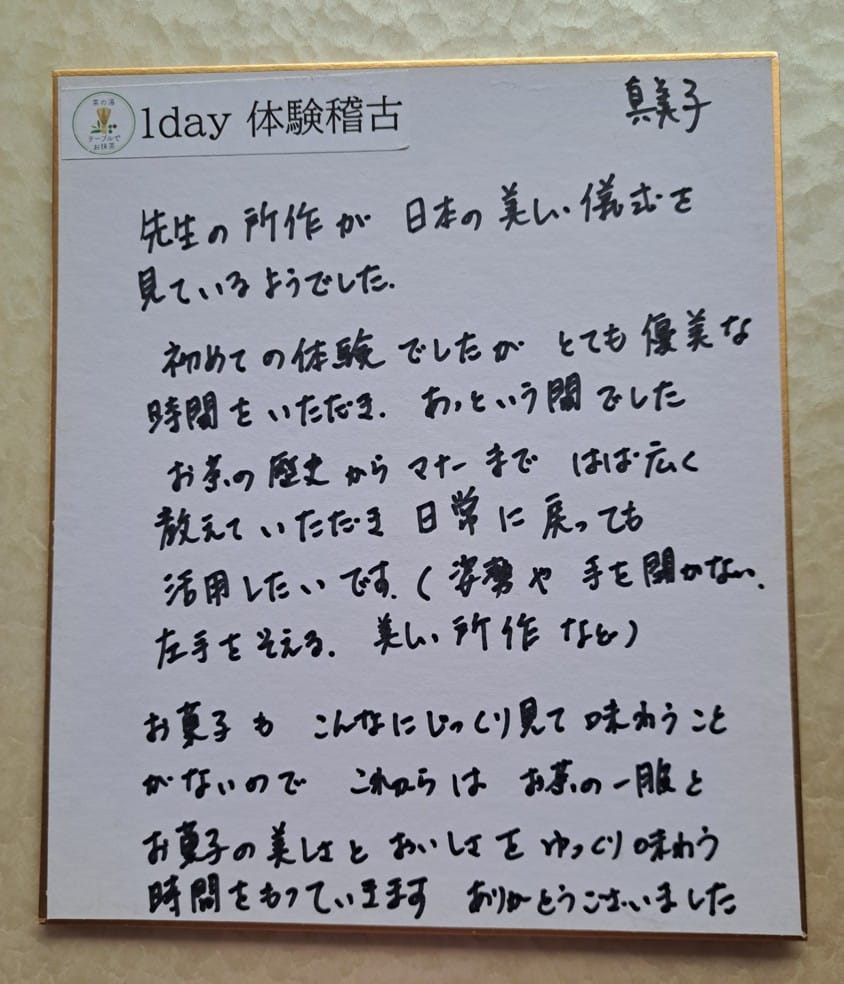 茶の湯
テーブルで
お抹茶
1day 体験稽古
真美子
先生の所作が 日本の美しい儀式を
見ているようでした.
初めての体験でしたが とても優美な
時間をいただき. あっという間でした
お茶の歴史からマナーまで はば広く
教えていただき 日常に戻っても
活用したいです.( 姿勢や 手を開かない.
左手をそえる. 美しい所作 など)
お菓子も こんなにじっくり見て味わうこと
がないので これからは お茶の一服と
お菓子の美しさと おいしさをゆっくり味わう
時間をもっていきます ありがとうございました